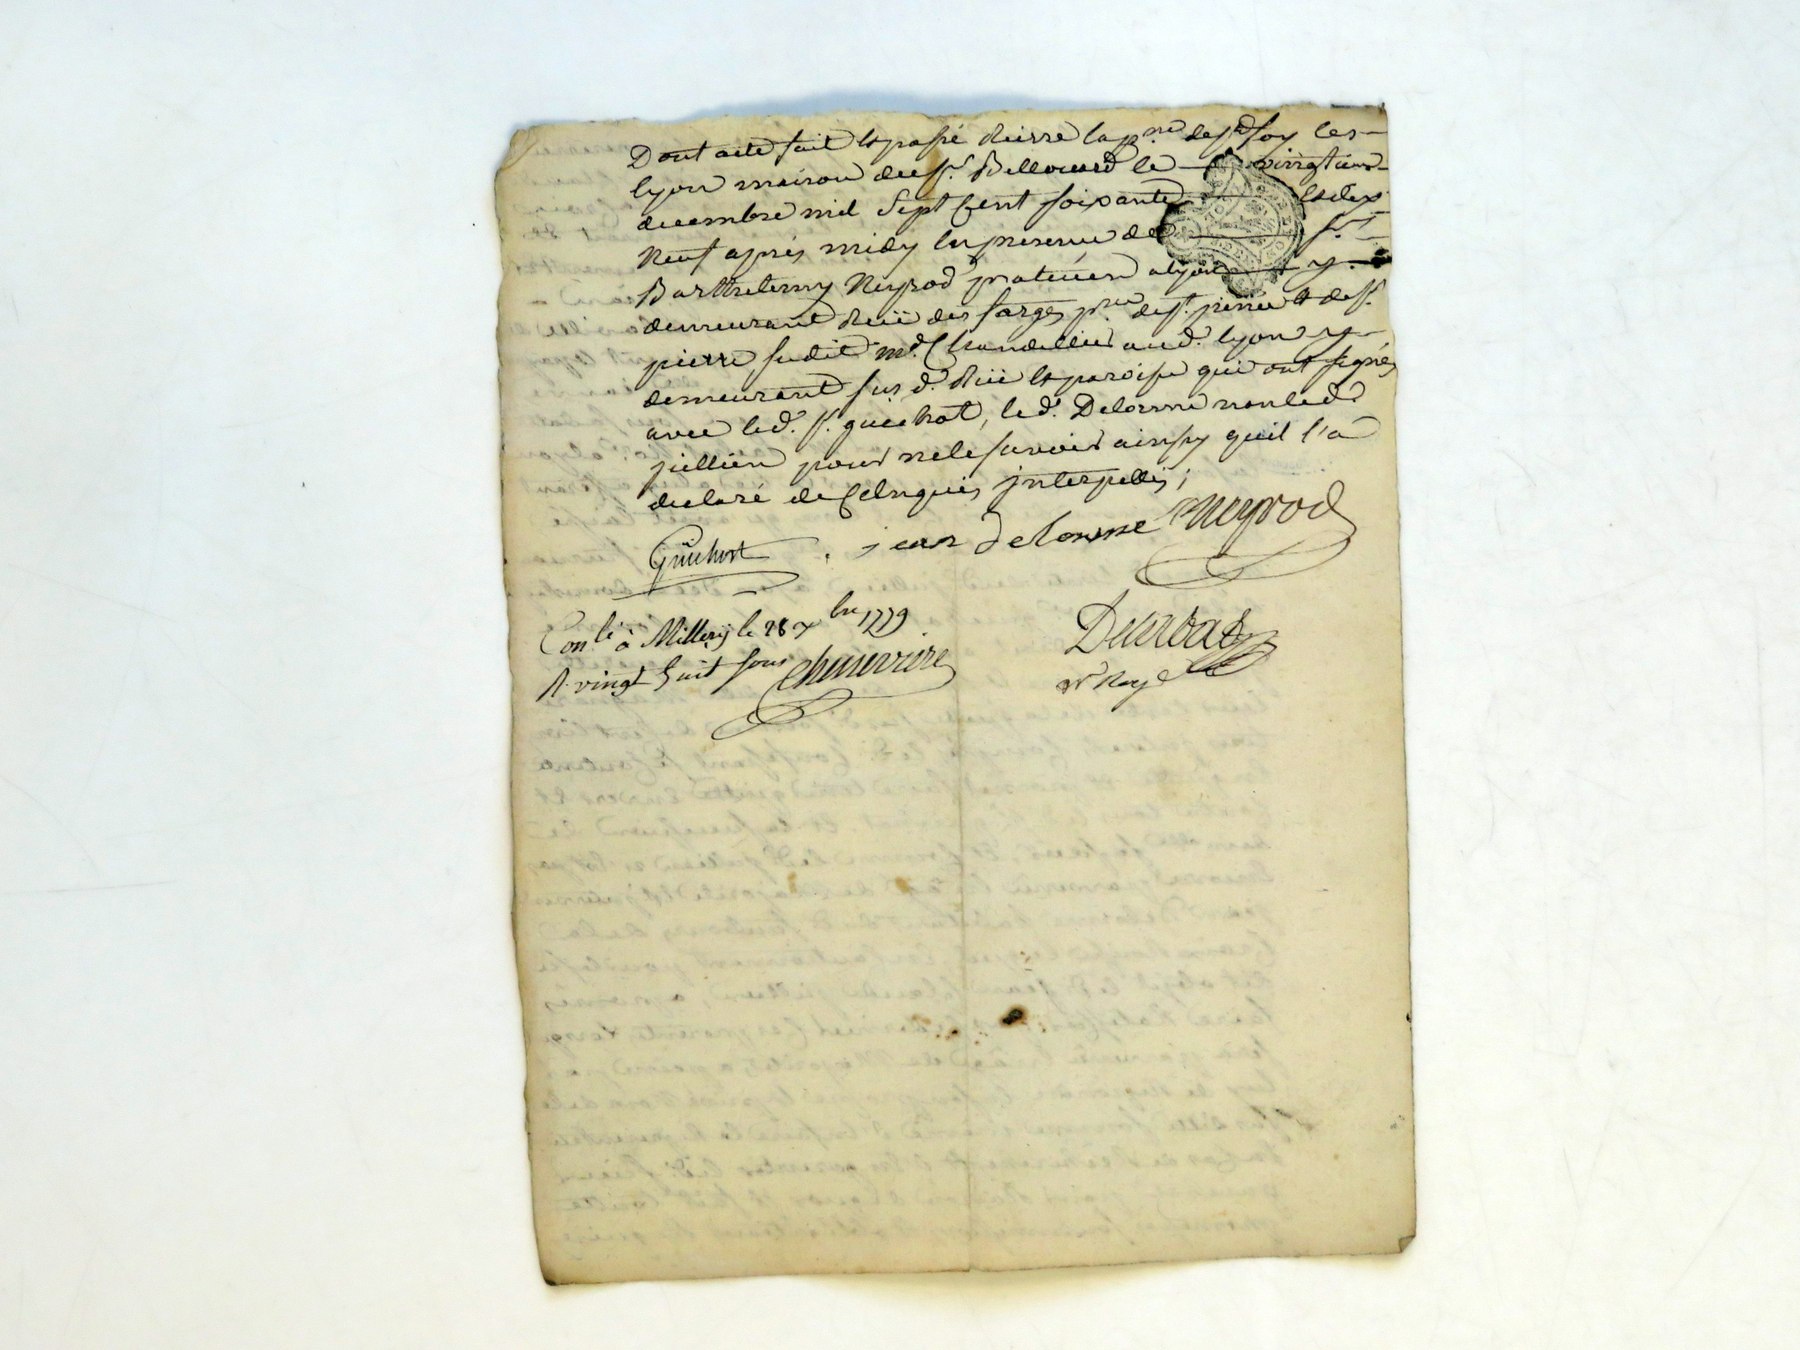 Dont acte fait et passé rierre la p.ne de s.te foy les
lyon maison du s.r Bellouard le vingtieme
decembre mil sept cent soixante et dix
neuf après midy en presence de s.r
Barthelemy Neyrod praticien a lyon y
demeurant rüe des farges p.sse de s.t jrenée et de s.r
pierre m.d Chandellier aud. lyon y
demeurant sus d. rüe et paroisse qui ont signés
avec led. s.r guichot, led. Delorme non led.
jullien pour ne le savoir ainsy quil l'a
declaré de ce enquis jnterpellés;
Guichot jean delorme Neyrod
Con.lé à Millery le 28 xbre 1779
R. vingt huit sous